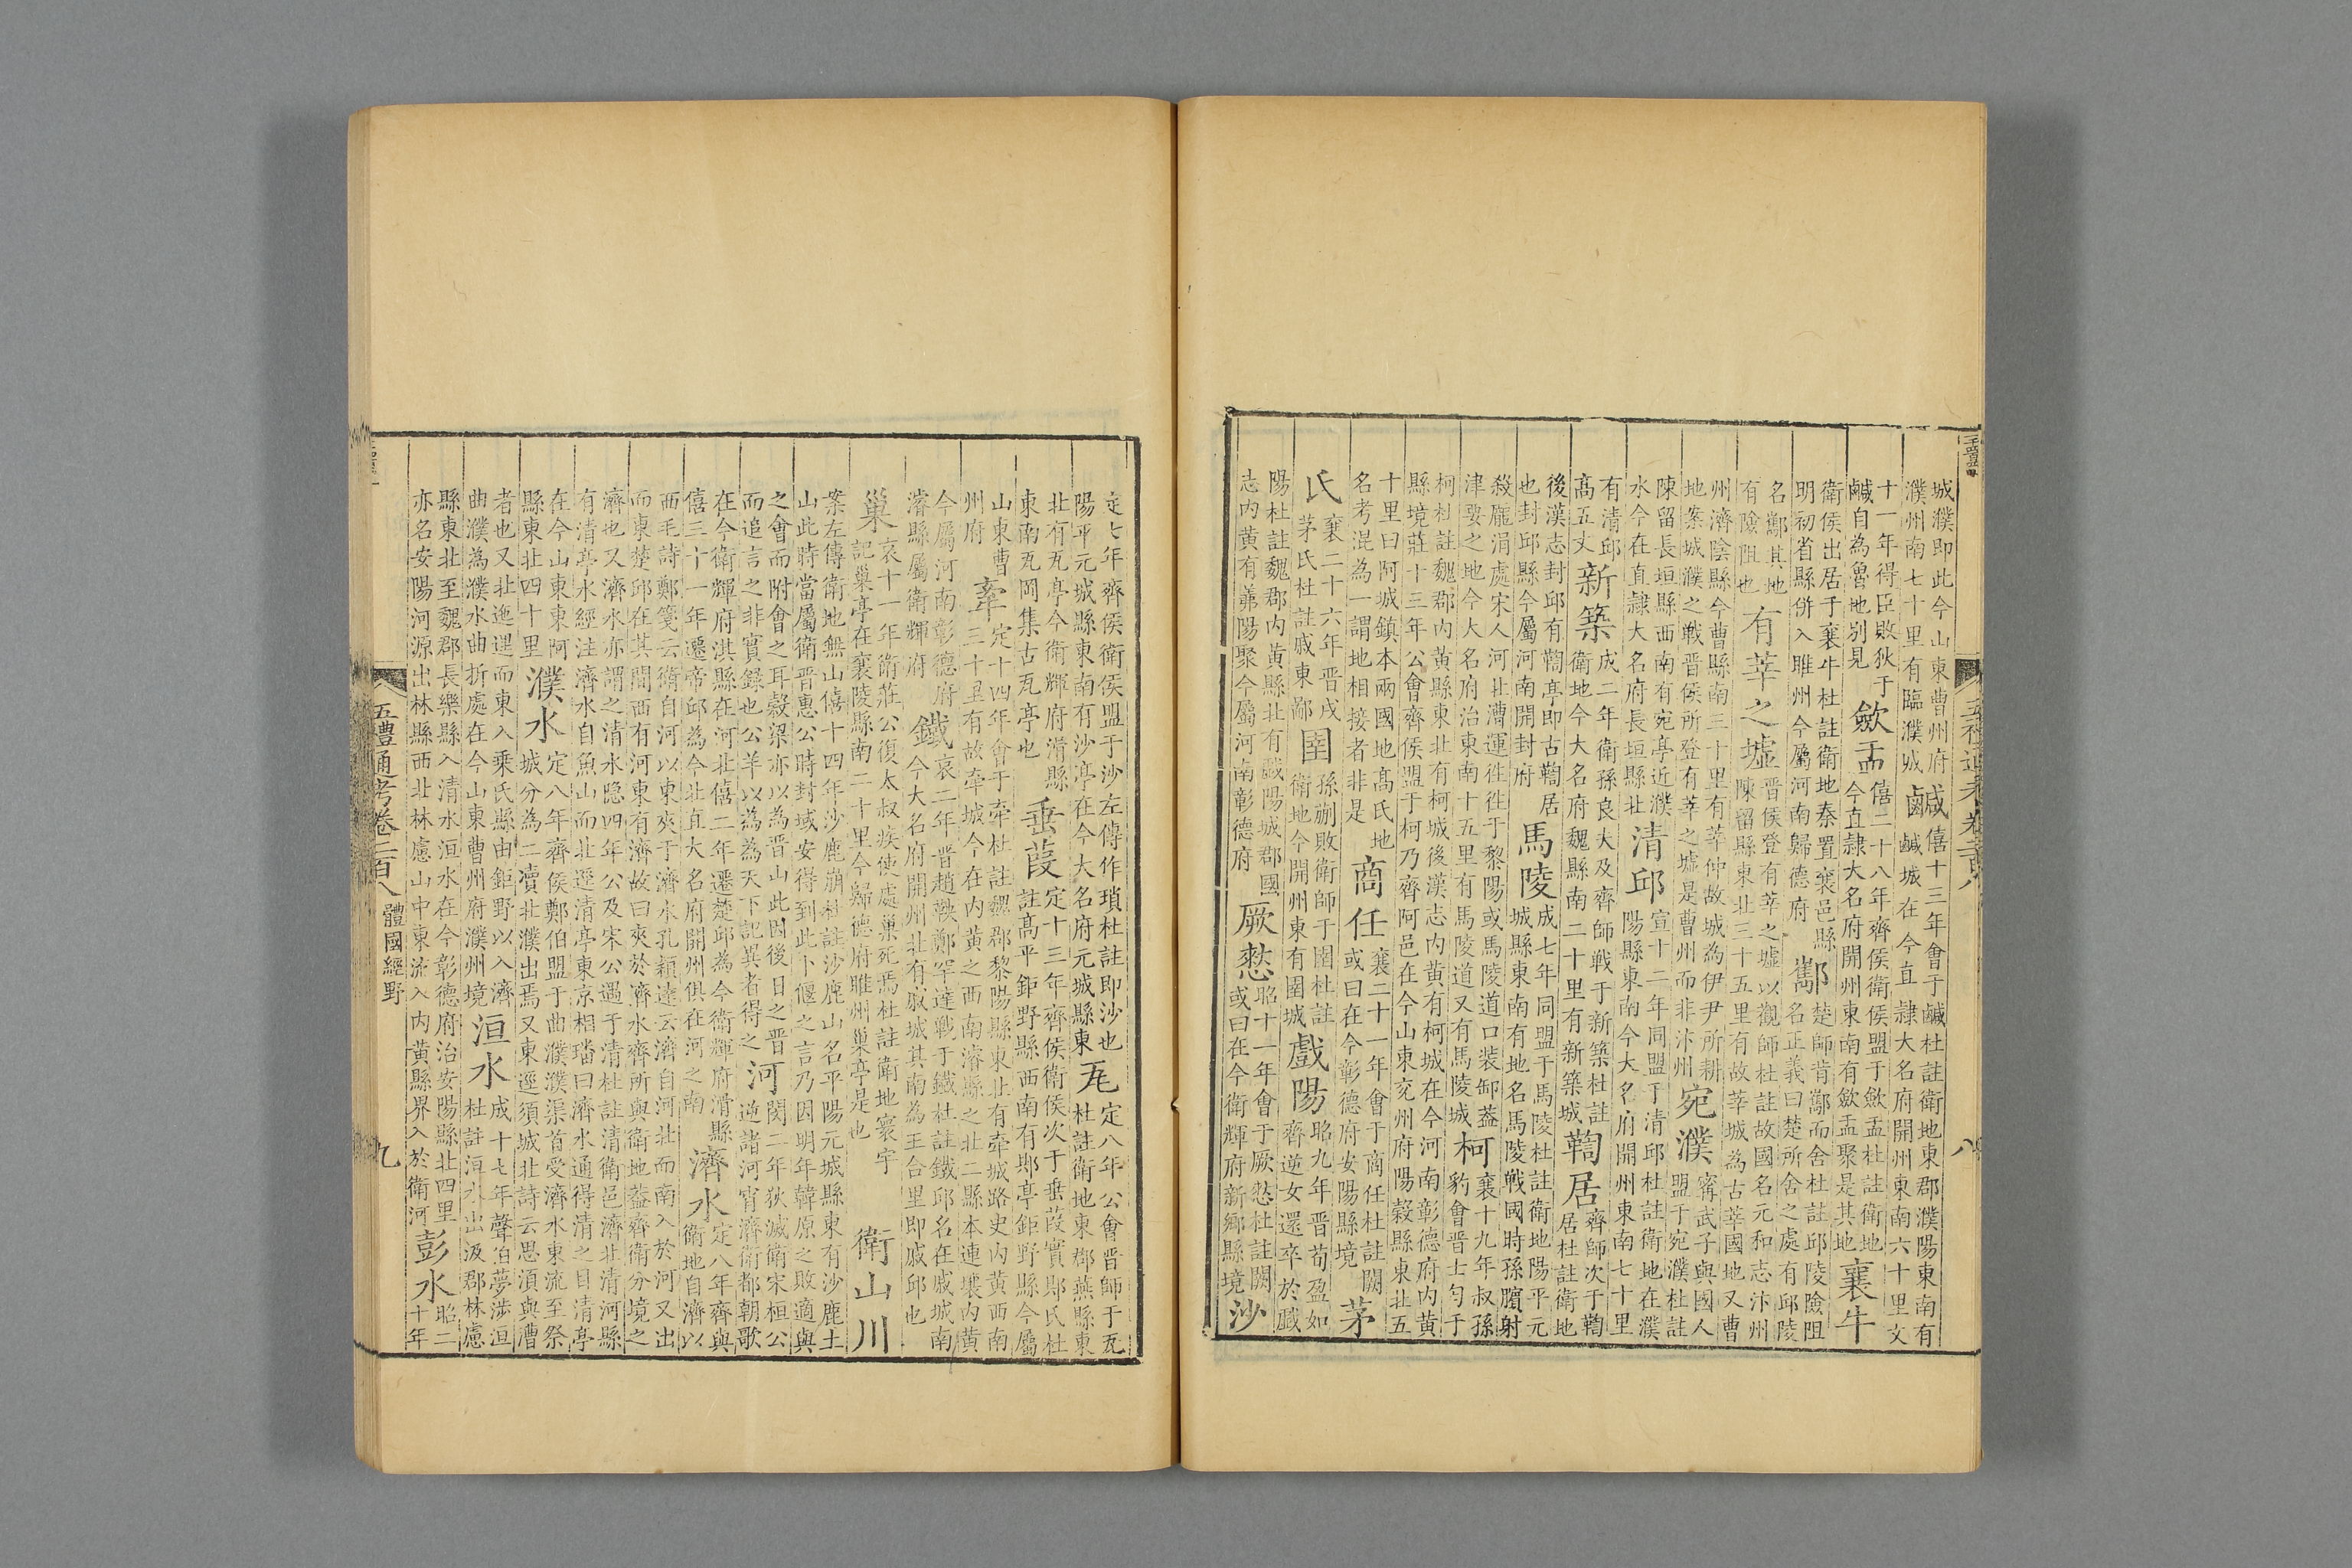 城濮即此今山東曹州府濮州南七十里有臨濮城鹹僖十三年會于鹹杜註衛地東郡濮陽東南有鹹城在今直隷大名府開州東南六十里文
十一年得臣敗狄于鹹自為魯地别見斂盂僖二十八年齊侯衛侯盟于斂盂杜註衛地今直隷大名府開州東南有斂盂聚是其地襄牛
衛侯出居于襄牛杜註衛地秦置襄邑縣明初省縣併入睢州今屬河南歸德府酅楚師背酅而舍杜註邱陵險阻名正義曰楚所舍之處有邱陵
名酅其地有險阻也有莘之墟晋侯登有莘之墟以觀師杜註故國名元和志汴州陳留縣東北三十五里有故莘城為古莘國地又曹
州濟陰縣今曹縣南三十里有莘仲故城為伊尹所耕地案城濮之戰晋侯所登有莘之墟是曹州而非汴州宛濮甯武子與國人盟于宛濮杜註
陳留長垣縣西南有宛亭近濮水今在直隷大名府長垣縣北清邱宣十二年同盟于清邱杜註衛地在濮陽縣東南今大名府開州東南七十里
有清邱高五丈新築成二年衛孫良夫及齊師戰于新築杜註衛地今大名府魏縣南二十里有新築城鞫居齊師次于鞫居杜註衛地
後漢志封邱有鞫亭即古鞫居也封邱縣今屬河南開封府馬陵成七年同盟于馬陵杜註衛地陽平元城縣東南有地名馬陵戰國時孫臏射
殺龐涓處宋人河北漕運往往于黎陽或馬陵道口裝卸葢津要之地今大名府治東南十五里有馬陵道又有馬陵城柯襄十九年叔孫豹會晋士匄于
柯杜註魏郡内黄縣東北有柯城後漢志内黄有柯城在今河南彰德府内黄縣境莊十三年公會齊侯盟于柯乃齊阿邑在今山東兖州府陽榖縣東北五
十里曰阿城鎮本兩國地高氏地名考混為一謂地相接者非是商任襄二十一年會于商任杜註闕或曰在今彰德府安陽縣境茅
氏襄二十六年晋戍茅氏杜註戚東鄙圉孫蒯敗衛師于圉杜註衛地今開州東有圉城戲陽昭九年晋荀盈如齊逆女還卒於戲
陽杜註魏郡内黄縣北有戲陽城郡國志内黄有羛陽聚今屬河南彰德府厥憖昭十一年會于厥憖杜註闕或曰在今衛輝府新鄉縣境沙
定七年齊侯衛侯盟于沙左傳作瑣杜註即沙也陽平元城縣東南有沙亭在今大名府元城縣東瓦定八年公會晋師于瓦杜註衛地東郡燕縣東
北有瓦亭今衛輝府滑縣東南瓦岡集古瓦亭也垂葭定十三年齊侯衛侯次于垂葭實郹氏杜註高平鉅野縣西南有郹亭鉅野縣今屬
山東曹州府牽定十四年會于牽杜註魏郡黎陽縣東北有牽城路史内黄西南三十里有故牽城今在内黄之西南濬縣之北二縣本連壤内黄
今屬河南彰德府濬縣屬衛輝府鐵哀二年晋趙鞅鄭罕達戰于鐵杜註鐵邱名在戚城南今大名府開州北有戚城其南為王合里即戚邱也
巢哀十一年衛莊公復太叔疾使處巢死焉杜註衛地寰宇記巢亭在襄陵縣南二十里今歸德府睢州巢亭是也衛山川
案左傳衛地無山僖十四年沙鹿崩杜註沙鹿山名平陽元城縣東有沙鹿土山此時當屬衛晋惠公時封域安得到此卜偃之言乃因明年韓原之敗適與
之會而附會之耳榖梁亦以為晋山此因後日之晋而追言之非實録也公羊以為為天下記異者得之河閔二年狄滅衛宋桓公逆諸河宵濟衛都朝歌
在今衛輝府淇縣在河北僖二年遷楚邱為今衛輝府滑縣僖三十一年遷帝邱為今北直大名府開州俱在河之南濟水定八年齊與衛地自濟以
西毛詩鄭箋云衛自河以東夾于濟水孔穎達云濟自河北而南入於河又出而東楚邱在其間西有河東有濟故曰夾於濟水齊所與衛地葢齊衛分境之
濟也又濟水亦謂之清水隐四年公及宋公遇于清杜註清衛邑濟北清河縣有清亭水經注濟水自魚山而北逕清亭東京相璠曰濟水通得清之目清亭
在今山東東阿縣東北四十里濮水定八年齊侯鄭伯盟于曲濮濮渠首受濟水東流至祭城分為二瀆北濮出焉又東逕須城北詩云思須與漕
者也又北迤逕而東入乗氏縣由鉅野以入濟曲濮為濮水曲折處在今山東曹州府濮州境洹水成十七年聲伯夢涉洹杜註洹水出汲郡林慮
縣東北至魏郡長樂縣入清水洹水在今彰德府治安陽縣北四里亦名安陽河源出林縣西北林慮山中東流入内黄縣界入於衛河彭水昭二十年
五禮通考卷二百八 體國經野 九